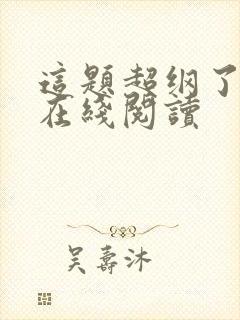 這題超纲了
在綫閱讀
吴壽沐